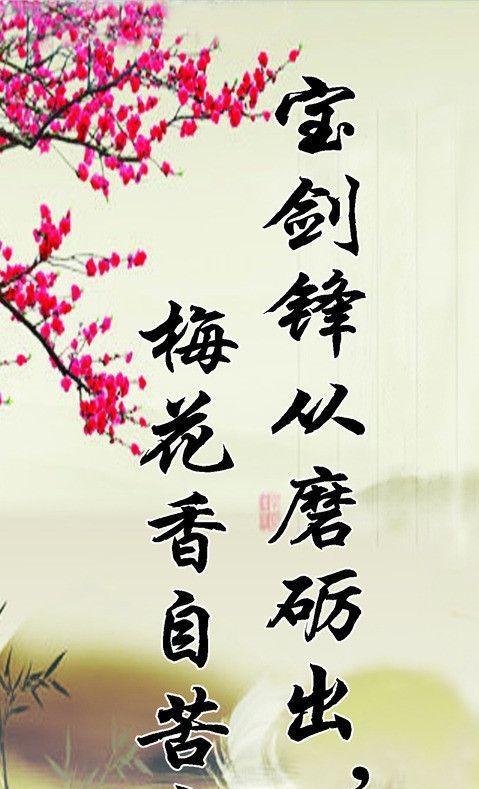 宝剑锋从磨砺出，
梅花香自苦